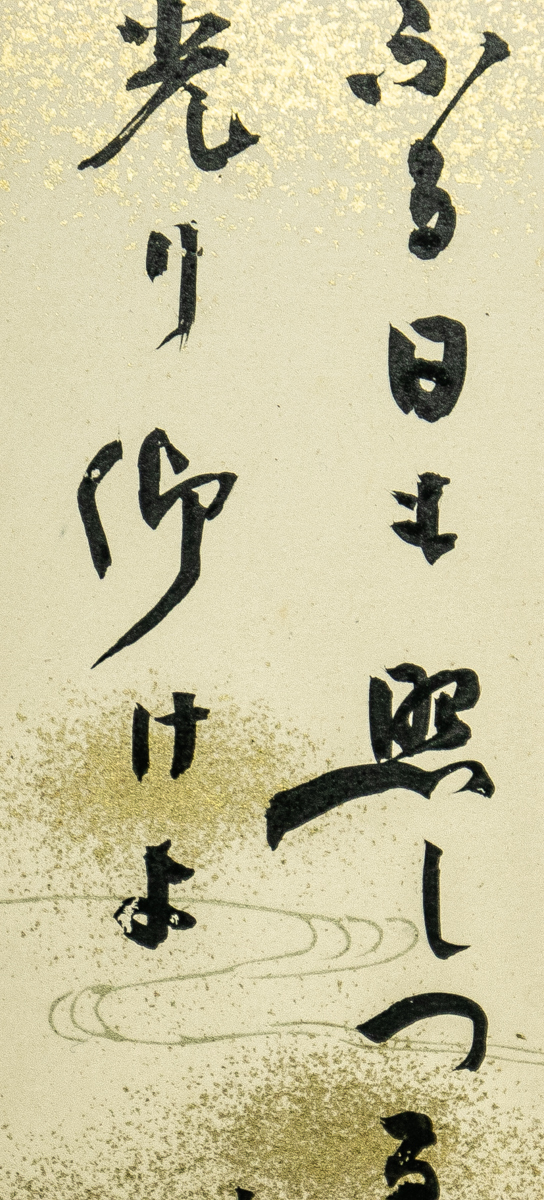 ふる日も照しつる
光り仰けよ